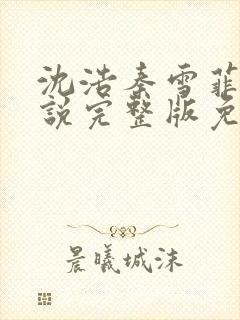 沈浩秦雪菲
說完整版免
晨曦城沫